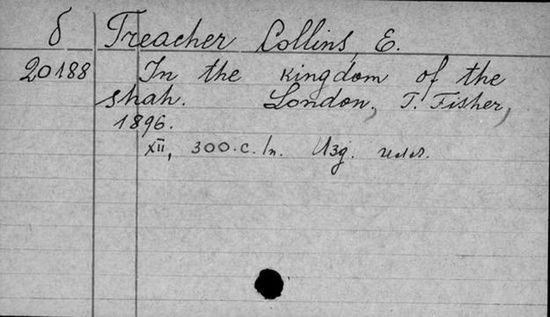 б Treacher Collins, E.
20188 In the kingdom of the
shah. London, T. Fisher,
1896.
XII, 300.c. In. Изд. илл.